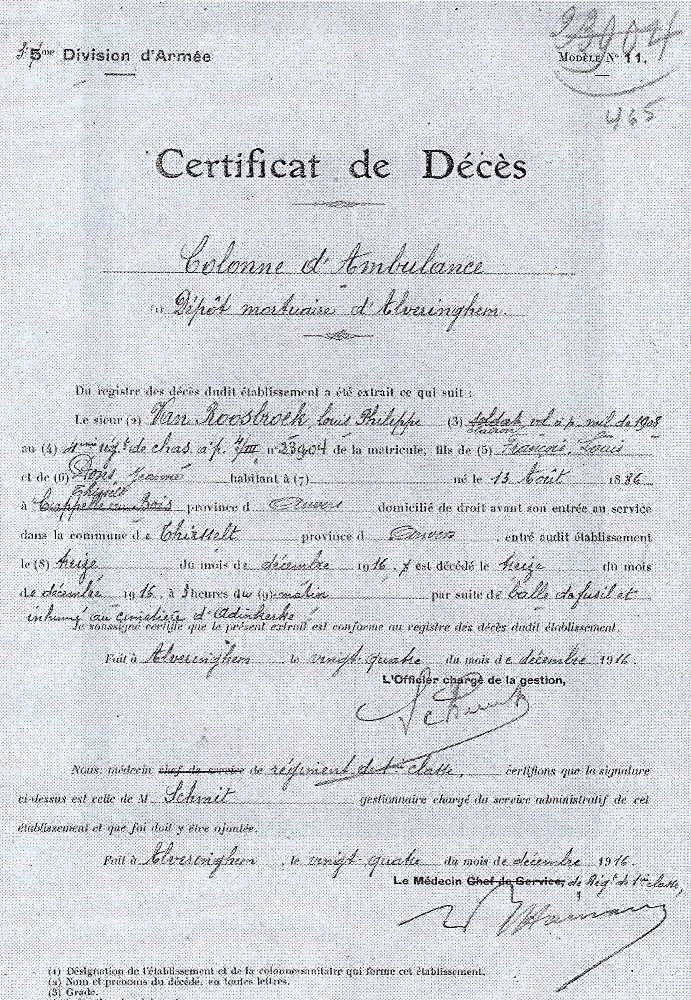 5me Division d'Armée
Modèle N° 11.
465
Certificat de Décès
Colonne d'Ambulance
(1) Dépôt mortuaire d'Alveringhem.
Du registre des décès dudit établissement a été extrait ce qui suit :
Le sieur (2) Van Roosbroek, Louis Philippe (3) soldat, vol. à p. mil. de 1908
clairon
au (4) régt de chas. à p. 4/III n° 23904 de la matricule, fils de (5) François, Louis
et de (6) Jeanne habitant à (7) né le 13 Août 1886
Thisselt
à Cappelle au Bois province d Anvers domicilié de droit avant son entrée au service
dans la commune de Thisselt province d Anvers, entré audit établissement
le (8) treize du mois de décembre 1916, & est décédé le treize du mois
de décembre 1916, à 3 heures du (9) matin par suite de balle de fusil et
inhumé au cimetière d'Adinkerke
Je soussigné certifie que le présent extrait est conforme au registre des décès dudit établissement.
Fait à Alveringhem, le vingt-quatre du mois de décembre 1916.
L'Officier chargé de la gestion,
Nous, médecin chef de service de régiment de 1re classe, certifions que la signature
ci-dessus est celle de M Schmit gestionnaire chargé du service administratif de cet
établissement et que foi doit y être ajoutée.
Fait à Alveringhem, le vingt-quatre du mois de décembre 1916.
Le Médecin Chef de Service, de Régt de 1re classe,
(1) Désignation de l'établissement et de la colonne sanitaire qui forme cet établissement.
(2) Nom et prénoms du décédé, en toutes lettres.
(3) Grade.